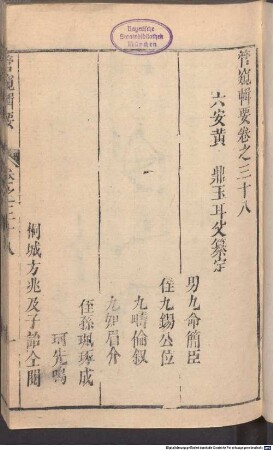 Bayerische
Staatsbibliothek
München
管窺輯要卷之三十八
六安黃　鼎玉耳父纂定
男九命簡臣
侄九錫公位
九疇倫敘
九如眉介
侄孫珮琢成
珂先鳴
桐城方兆及子詒全閱
管窺輯要
卷之三十八
一